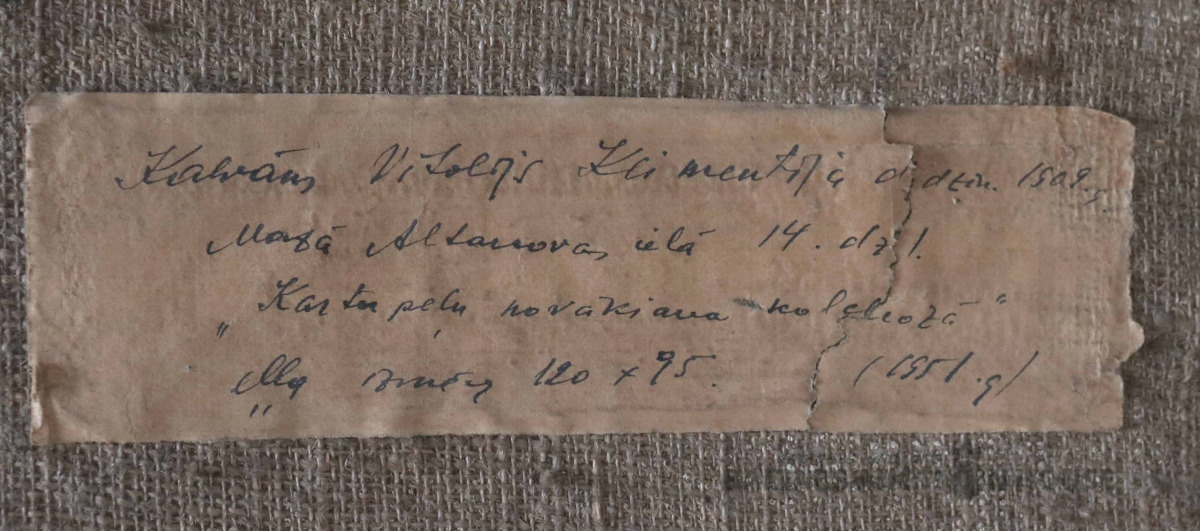 Kalvāns Vitolijs Klimentija d. dzim. 1909. g.
Mazā Altonovas ielā 14. dz. 1.
„Kartupeļu novākšana kolchozā“
eļļa izmērs 120 x 95. (1951. g)